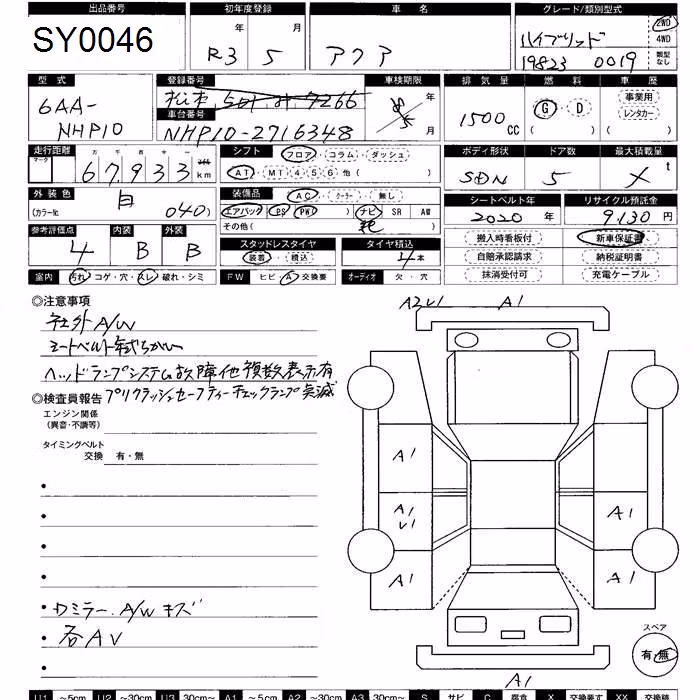 出品番号 初年度登録 車名 グレード/類別型式
SY0046 R3年 5月 アクア ハイブリッド 2WD 4WD
19823 0019 類型なし
型式 登録番号 車検期限 排気量 燃料 車歴
6AA-NHP10 松本 501 7266 8年 5月 1500CC G・D 事業用 レンタカー
車台番号
NHP10-2716348
走行距離 シフト ボディ形状 ドア数 最大積載量
マーク 十 万 千 百 十 一 フロア・コラム・ダッシュ
67933 km AT・MT 4 5 6 他( ) SDN 5 × t
外装色 白 装備品 AC・クーラー・無し シートベルト年 リサイクル預託金
(カラーNo. 040) エアバッグ PS PW ナビ SR AW 2020年 9130円
その他( )
参考評価点 内装 外装 スタッドレスタイヤ タイヤ積込 搬入時看板付 新車保証書
4 B B 装着・積込 4本 自賠承認請求 納税証明書
室内 汚れ・コゲ・穴・スレ・破れ・シミ FW ヒビ・A・交換要 オーディオ 欠・穴 抹消受付可 充電ケーブル
◎注意事項
社外A/W
シートベルト年式ちがい
ヘッドランプシステム故障他複数表示有
プリクラッシュセーフティーチェックランプ点滅
◎検査員報告
エンジン関係
(異音・不調等)
タイミングベルト
交換 有・無
・ドミラー、A/Wキズ
・各AV
A2 U1 A1
A1
A1
U1
A1
A1
A1
A1
スペア
有・無
U1 ～5cm U2 ～30cm U3 30cm～ A1 ～5cm A2 ～30cm A3 30cm～ S サビ C 腐食 X 交換要す XX 交換跡